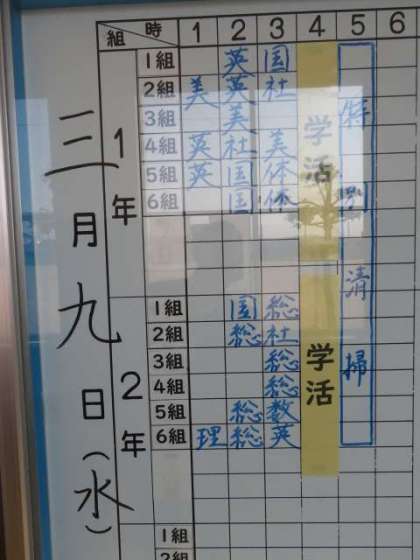 三月九日(水)
組 時 1 2 3 4 5 6
1年
1組 英 国
2組 美 英 社
3組 美
4組 英 社 美
5組 英 国 体
6組 国 体
2年
1組 国 総
2組 総 社
3組 総
4組 総
5組 総 数
6組 理 総 英
学活
学活
特別清掃
1組
2組